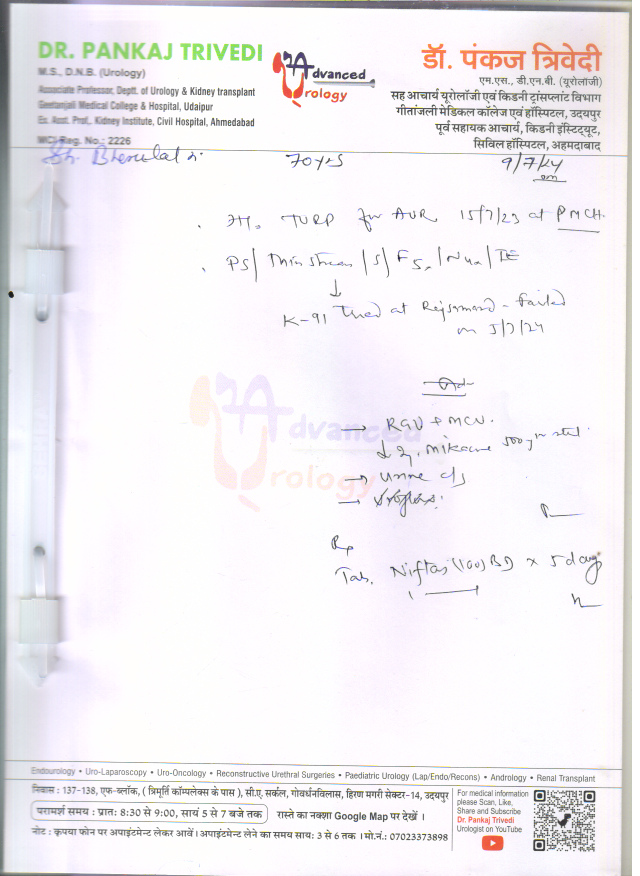 DR. PANKAJ TRIVEDI
M.S., D.N.B. (Urology)
Associate Professor, Deptt. of Urology & Kidney transplant
Geetanjali Medical College & Hospital, Udaipur
Ex. Asst. Prof., Kidney Institute, Civil Hospital, Ahmedabad
MCI Reg. No.: 2226
Advanced
Urology
डॉ. पंकज त्रिवेदी
एम.एस., डी.एन.बी. (यूरोलॉजी)
सह आचार्य यूरोलॉजी एवं किडनी ट्रांसप्लांट विभाग
गीतांजली मेडिकल कॉलेज एवं हॉस्पिटल, उदयपुर
पूर्व सहायक आचार्य, किडनी इंस्टिट्यूट,
सिविल हॉस्पिटल, अहमदाबाद
70 yrs 9/7/24
TURP for AUR 15/7/23 at PMCH
PS/ Thin stream /S/
K-91 tried at Rajsamand - failed
on 5/7/24
→ RGU + MCU.
→ urine c/s
Rp
Tab. Niftas (100) BD x 5 days
Advanced
Urology
Endourology • Uro-Laparoscopy • Uro-Oncology • Reconstructive Urethral Surgeries • Paediatric Urology (Lap/Endo/Recons) • Andrology • Renal Transplant
निवास : 137-138, एफ-ब्लॉक, ( त्रिमूर्ति कॉम्पलेक्स के पास ), सी.ए. सर्कल, गोवर्धनविलास, हिरण मगरी सेक्टर-14, उदयपुर
परामर्श समय : प्रातः 8:30 से 9:00, सायं 5 से 7 बजे तक रास्ते का नक्शा Google Map पर देखें ।
नोट : कृपया फोन पर अपाइंटमेन्ट लेकर आवें । अपाइंटमेन्ट लेने का समय सायः 3 से 6 तक । मो.नं.: 07023373898
For medical information
please Scan, Like,
Share and Subscribe
Dr. Pankaj Trivedi
Urologist on YouTube